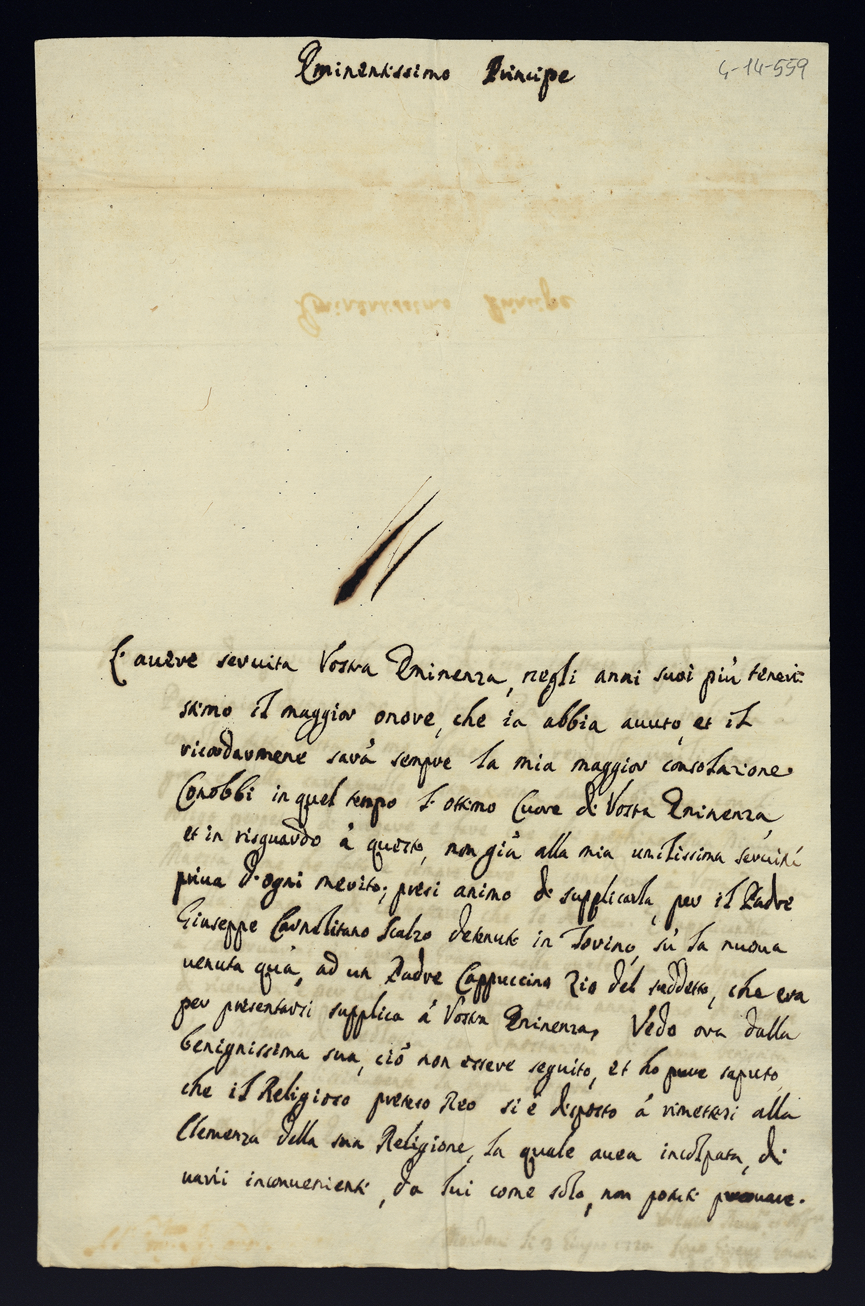 Eminentissimo Principe
4-14-559
L'avere servita Vostra Eminenza, negli anni suoi più teneri è
stimo il maggior onore, che ia abbia avuto, et il
ricordarmene sarà sempre la mia maggior consolazione.
Conobbi in quel tempo l'ottimo Cuore di Vostra Eminenza,
et in risguardo à questo, non già alla mia umilissima servitù
priva d'ogni merito; presi animo di supplicarla, per il Padre
Giuseppe Carmelitano Scalzo detenuto in Torino, sù la nuova
venuta quà, ad un Padre Cappuccino Zio del suddetto, che era
per presentarsi supplica à Vostra Eminenza, Vedo ora dalla
benignissima sua, ciò non essere seguito, et ho pure saputo,
che il Religioso preteso Reo si è disposto à rimettersi alla
Clemenza della sua Religione, la quale avea incolpata, di
varii inconvenienti, da lui come solo, non potuti provare.